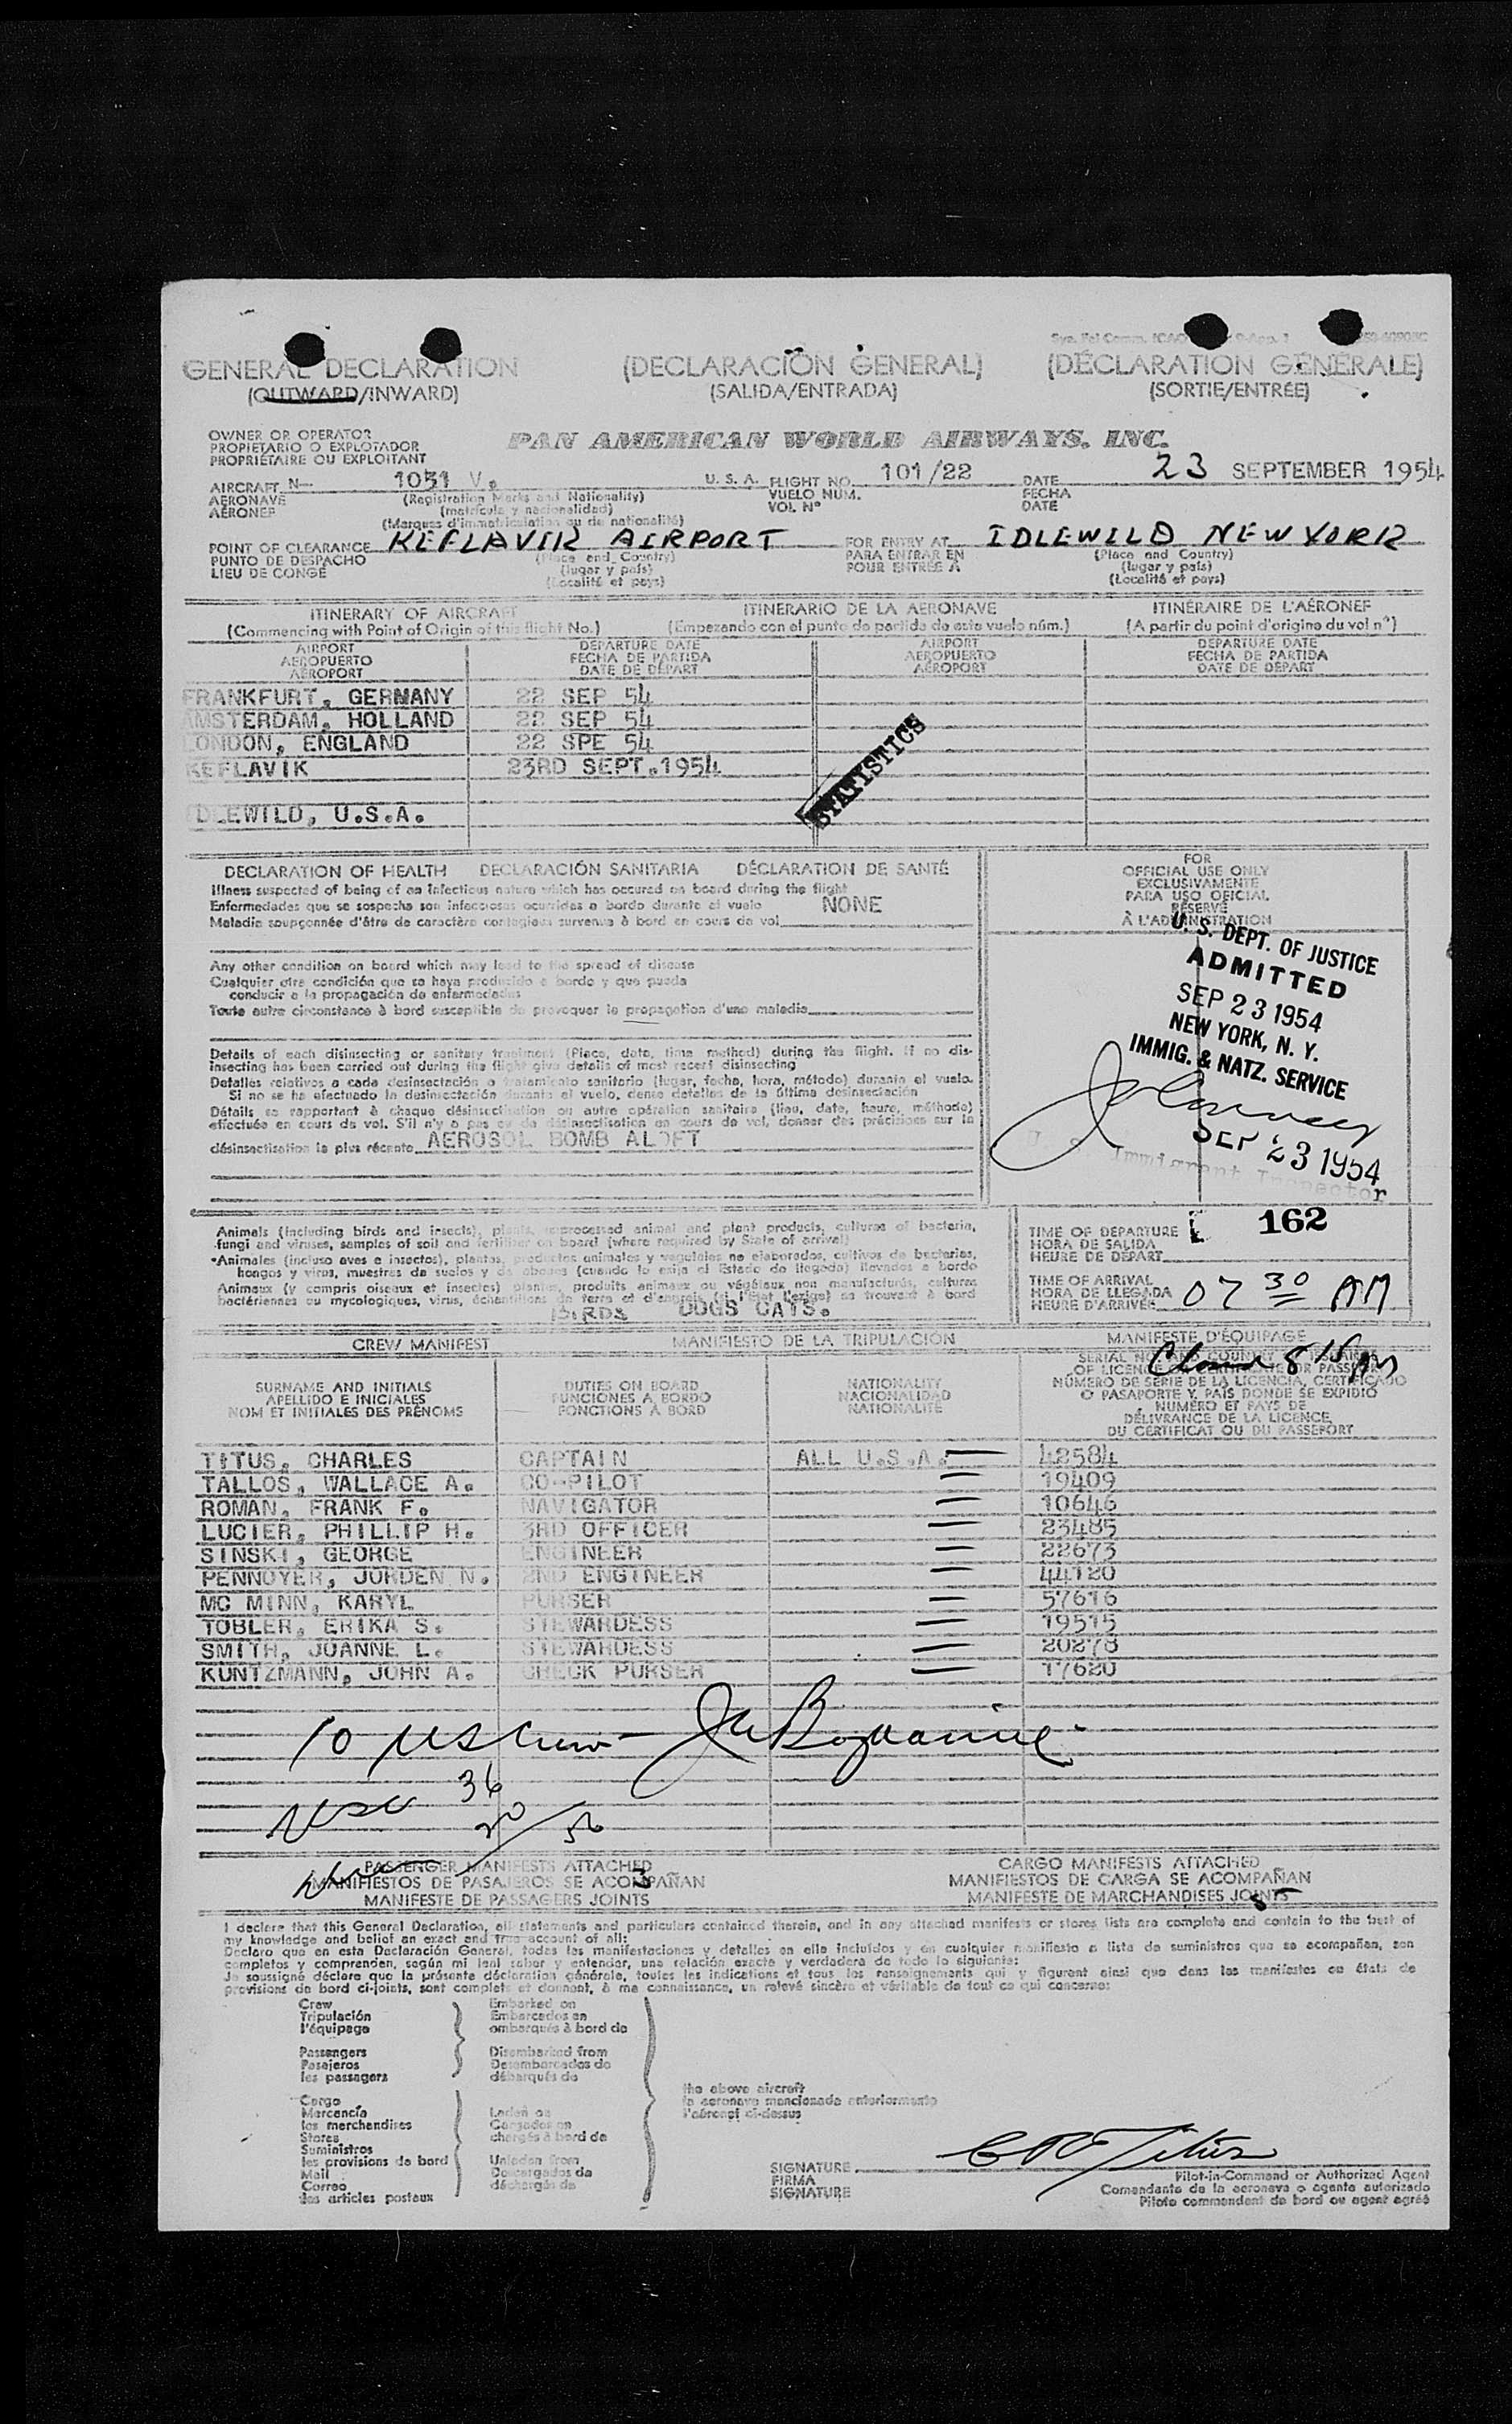 GENERAL DECLARATION (DECLARACIÓN GENERAL) (DÉCLARATION GÉNÉRALE)
(OUTWARD/INWARD) (SALIDA/ENTRADA) (SORTIE/ENTRÉE)
OWNER OR OPERATOR
PROPIETARIO O EXPLOTADOR
PROPRIÉTAIRE OU EXPLOITANT
PAN AMERICAN WORLD AIRWAYS, INC.
AIRCRAFT N— 1031 V. U. S. A. FLIGHT NO. 101/22 DATE 23 SEPTEMBER 1954
AERONAVE (Registration Marks and Nationality) VUELO NÚM. FECHA
AÉRONEF (matrícula y nacionalidad) VOL N° DATE
(Marques d'immatriculation ou de nationalité)
POINT OF CLEARANCE KEFLAVIK AIRPORT FOR ENTRY AT IDLEWILD NEW YORK
PUNTO DE DESPACHO (Place and Country) PARA ENTRAR EN (Place and Country)
LIEU DE CONGÉ (lugar y país) POUR ENTRÉE À (lugar y país)
(Localité et pays) (Localité et pays)
ITINERARY OF AIRCRAFT ITINERARIO DE LA AERONAVE ITINÉRAIRE DE L'AÉRONEF
(Commencing with Point of Origin of this flight No.) (Empezando con el punto de partida de este vuelo núm.) (A partir du point d'origine du vol n°)
AIRPORT DEPARTURE DATE AIRPORT DEPARTURE DATE
AEROPUERTO FECHA DE PARTIDA AEROPUERTO FECHA DE PARTIDA
AÉROPORT DATE DE DÉPART AÉROPORT DATE DE DÉPART
FRANKFURT, GERMANY 22 SEP 54
AMSTERDAM, HOLLAND 22 SEP 54
LONDON, ENGLAND 22 SPE 54
KEFLAVIK 23RD SEPT.1954
STATISTICS
IDLEWILD, U.S.A.
DECLARATION OF HEALTH DECLARACIÓN SANITARIA DÉCLARATION DE SANTÉ
Illness suspected of being of an infectious nature which has occured on board during the flight
Enfermedades que se sospecha son infecciosas ocurridas a bordo durante el vuelo NONE
Maladie soupçonnée d'être de caractère contagieux survenue à bord en cours de vol
Any other condition on board which may lead to the spread of disease
Cualquier otra condición que se haya producido a bordo y que pueda
conducir a la propagación de enfermedades
Toute autre circonstance à bord susceptible de provoquer la propagation d'une maladie
Details of each disinsecting or sanitary treatment (Place, date, time method) during the flight. If no dis-
insecting has been carried out during the flight give details of most recent disinsecting
Detalles relativos a cada desinsectación o tratamiento sanitario (lugar, fecha, hora, método) durante el vuelo.
Si no se ha efectuado la desinsectación durante el vuelo, dense detalles de la última desinsectación
Détails se rapportant à chaque désinsectisation ou autre opération sanitaire (lieu, date, heure, méthode)
effectuée en cours de vol. S'il n'y a pas eu de désinsectisation en cours de vol, donner des précisions sur la
désinsectisation la plus récente AEROSOL BOMB ALOFT
FOR
OFFICIAL USE ONLY
EXCLUSIVAMENTE
PARA USO OFICIAL
RÉSERVÉ
À L'ADMINISTRATION
U. S. DEPT. OF JUSTICE
ADMITTED
SEP 23 1954
NEW YORK, N. Y.
IMMIG. & NATZ. SERVICE
SEP 23 1954
U. S. Immigrant Inspector
Animals (including birds and insects), plants, unprocessed animal and plant products, cultures of bacteria,
fungi and viruses, samples of soil and fertilizer on board (where required by State of arrival)
Animales (incluso aves e insectos), plantas, productos animales y vegetales no elaborados, cultivos de bacterias,
hongos y virus, muestras de suelos y de abonos (cuando lo exija el Estado de llegada) llevados a bordo
Animaux (y compris oiseaux et insectes) plantes, produits animaux ou végétaux non manufacturés, cultures
bactériennes ou mycologiques, virus, échantillons de terre et d'engrais (si l'État l'exige) se trouvant à bord
BIRDS DOGS CATS.
TIME OF DEPARTURE 162
HORA DE SALIDA
HEURE DE DÉPART
TIME OF ARRIVAL
HORA DE LLEGADA 07 30 AM
HEURE D'ARRIVÉE
CREW MANIFEST MANIFIESTO DE LA TRIPULACIÓN MANIFESTE D'ÉQUIPAGE
SURNAME AND INITIALS
APELLIDO E INICIALES
NOM ET INITIALES DES PRÉNOMS
DUTIES ON BOARD
FUNCIONES A BORDO
FONCTIONS À BORD
NATIONALITY
NACIONALIDAD
NATIONALITÉ
NÚMERO DE SERIE DE LA LICENCIA, CERTIFICADO
O PASAPORTE Y PAÍS DONDE SE EXPIDIÓ
NUMÉRO ET PAYS DE
DÉLIVRANCE DE LA LICENCE,
DU CERTIFICAT OU DU PASSEPORT
TITUS, CHARLES CAPTAIN ALL U.S.A. 42584
TALLOS, WALLACE A. CO-PILOT 19409
ROMAN, FRANK F. NAVIGATOR 10646
LUCIER, PHILLIP H. 3RD OFFICER 23485
SINSKI, GEORGE ENGINEER 22673
PENNOYER, JORDEN N. 2ND ENGINEER 44120
MC MINN, KARYL PURSER 57616
TOBLER, ERIKA S. STEWARDESS 19515
SMITH, JOANNE L. STEWARDESS 20278
KUNTZMANN, JOHN A. CHECK PURSER 17620
10 US Crew
36
20
56
PASSENGER MANIFESTS ATTACHED CARGO MANIFESTS ATTACHED
MANIFIESTOS DE PASAJEROS SE ACOMPAÑAN 3 MANIFIESTOS DE CARGA SE ACOMPAÑAN
MANIFESTE DE PASSAGERS JOINTS MANIFESTE DE MARCHANDISES JOINTS
I declare that this General Declaration, all statements and particulars contained therein, and in any attached manifests or stores lists are complete and contain to the best of
my knowledge and belief an exact and true account of all:
Declaro que en esta Declaración General, todas las manifestaciones y detalles en ella incluídos y en cualquier manifiesto o lista de suministros que se acompañan, son
completos y comprenden, según mi leal saber y entender, una relación exacta y verdadera de todo lo siguiente:
Je soussigné déclare que la présente déclaration générale, toutes les indications et tous les renseignements qui y figurent ainsi que dans les manifestes ou états de
provisions de bord ci-joints, sont complets et donnent, à ma connaissance, un relevé sincère et véritable de tout ce qui concerne:
Crew Embarked on
Tripulación Embarcados en
l'équipage embarqués à bord de
Passengers Disembarked from
Pasajeros Desembarcados de
les passagers débarqués de
the above aircraft
la aeronave mencionada anteriormente
l'aéronef ci-dessus
Cargo
Mercancía Laden on
les merchandises Cargados en
Stores chargés à bord de
Suministros
les provisions de bord Unladen from
Mail Descargados de
Correo déchargés de
des articles postaux
SIGNATURE
FIRMA
SIGNATURE
Pilot-in-Command or Authorized Agent
Comandante de la aeronave o agente autorizado
Pilote commandant de bord ou agent agréé